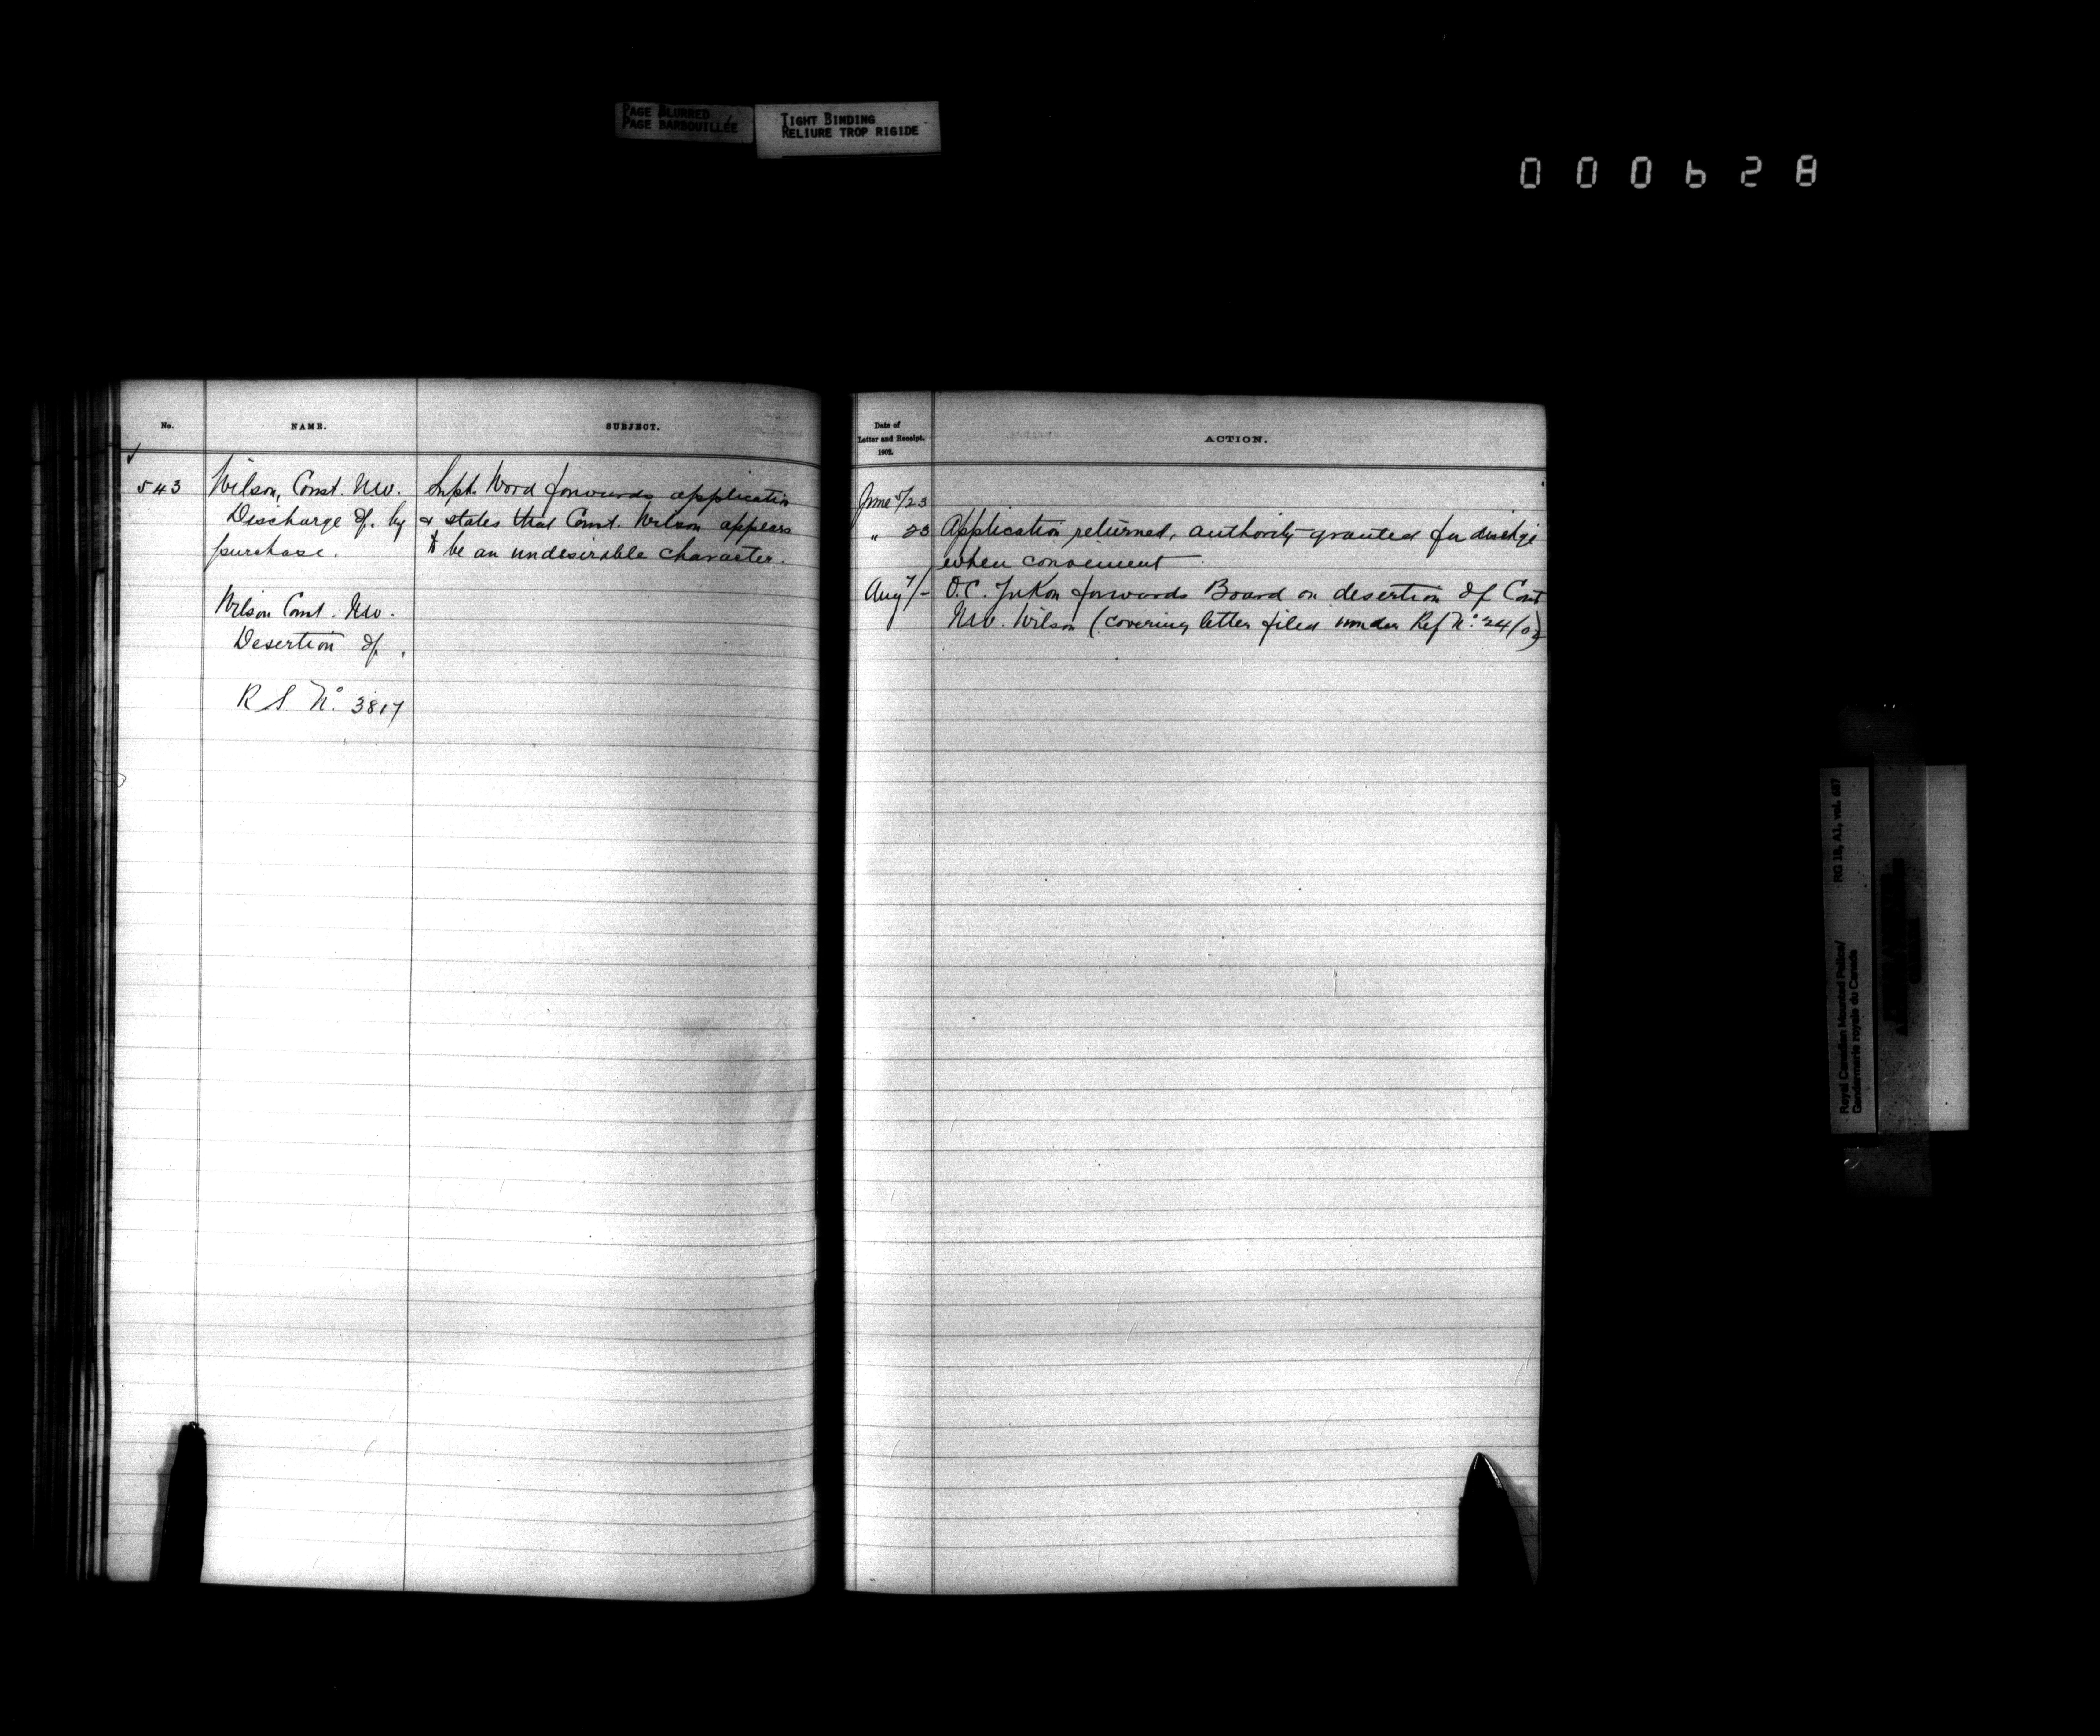 PAGE BLURRED
PAGE BARBOUILLÉE
TIGHT BINDING
RELIURE TROP RIGIDE
000628
No.
NAME.
SUBJECT.
543
Wilson, Const. N.W.
Discharge of, by
purchase.
Wilson Const. N.W.
Desertion of,
R S. No. 3817
Supt. Wood forwards application
& states that Const. Wilson appears
to be an undesirable character.
Date of
Letter and Receipt.
1902.
ACTION.
June 5/23
" 23 Application returned, authority granted for dischge
when convenient
Aug 7/- O.C. Yukon forwards Board on desertion of Const
N.W. Wilson (covering letter filed under Ref No. 24/02)
RG 18, A1, vol. 697
Royal Canadian Mounted Police/
Gendarmerie royale du Canada